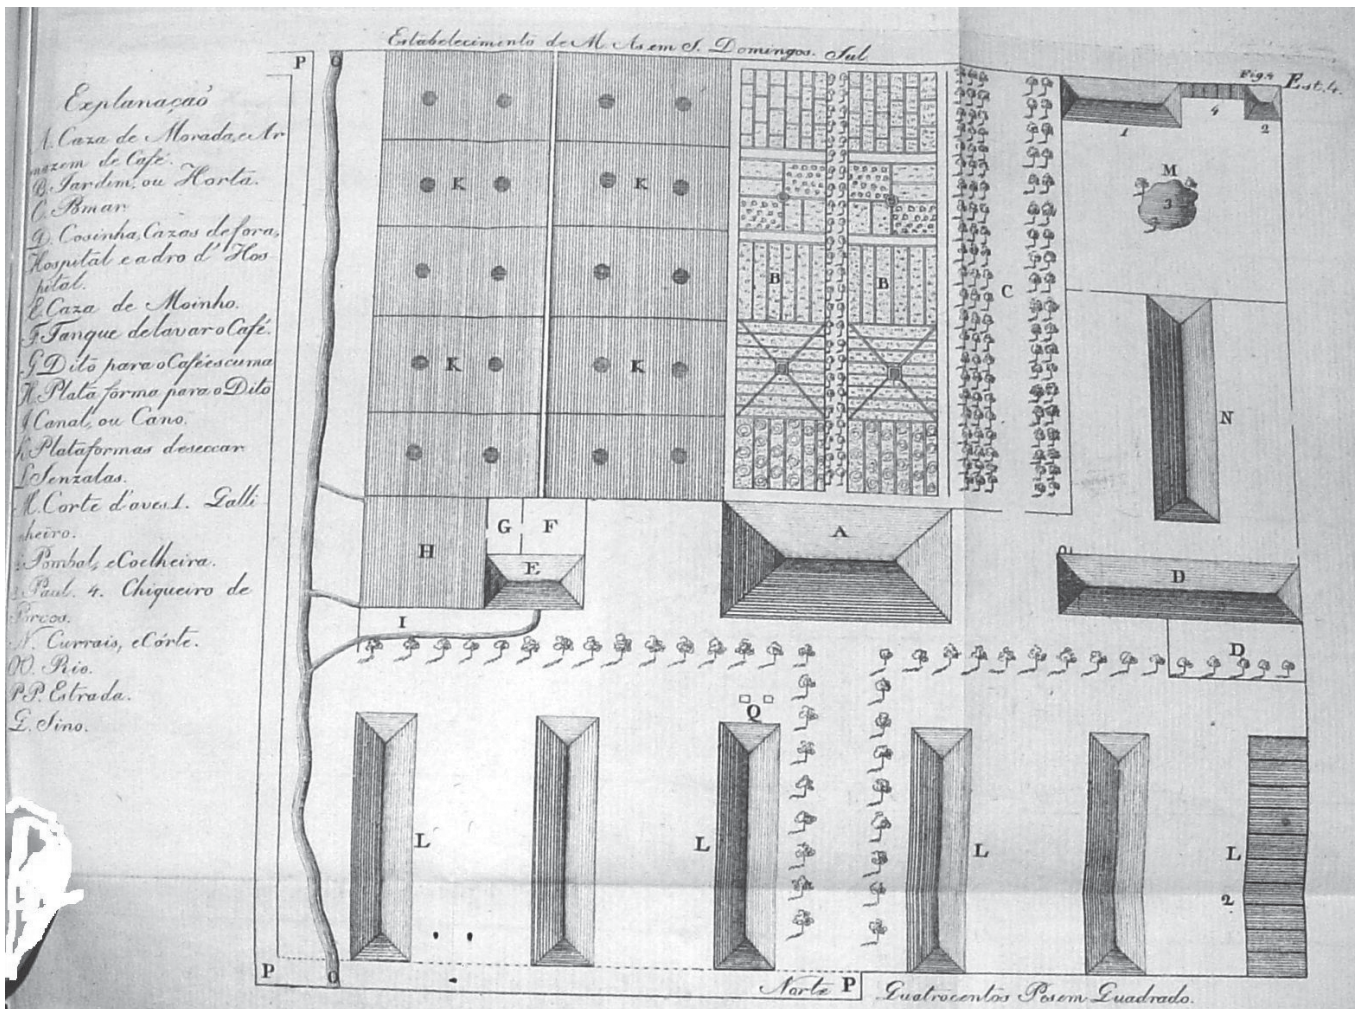 Estabelecimento de M As em S. Domingos. Sul
Fig.ª Est. 4.
Explanação
A. Caza de Morada, e Ar
mazem de Café.
B. Jardim, ou Horta.
C. Pomar
D. Cosinha, Cazas de fora,
Hospital e adro d'Hos
pital.
E. Caza de Moinho.
F. Tanque de lavar o Café.
G. Dito para o Café escuma
H. Plata forma para o Dito
I Canal, ou Cano.
K Plataformas de seccar
L Senzalas.
M. Corte d'aves 1. Galli
nheiro.
Pombal, e Coelheira.
Paul. 4. Chiqueiro de
Porcos.
N. Currais, e Córte.
OO. Rio.
PP. Estrada.
Q. Sino.
P O
1 4 2
M
3
K K
B B
C
K K
N
G F
H A
E
D
I
D
Q
L L L L
2
P O
Norte P Quatrocentos Pés em Quadrado.